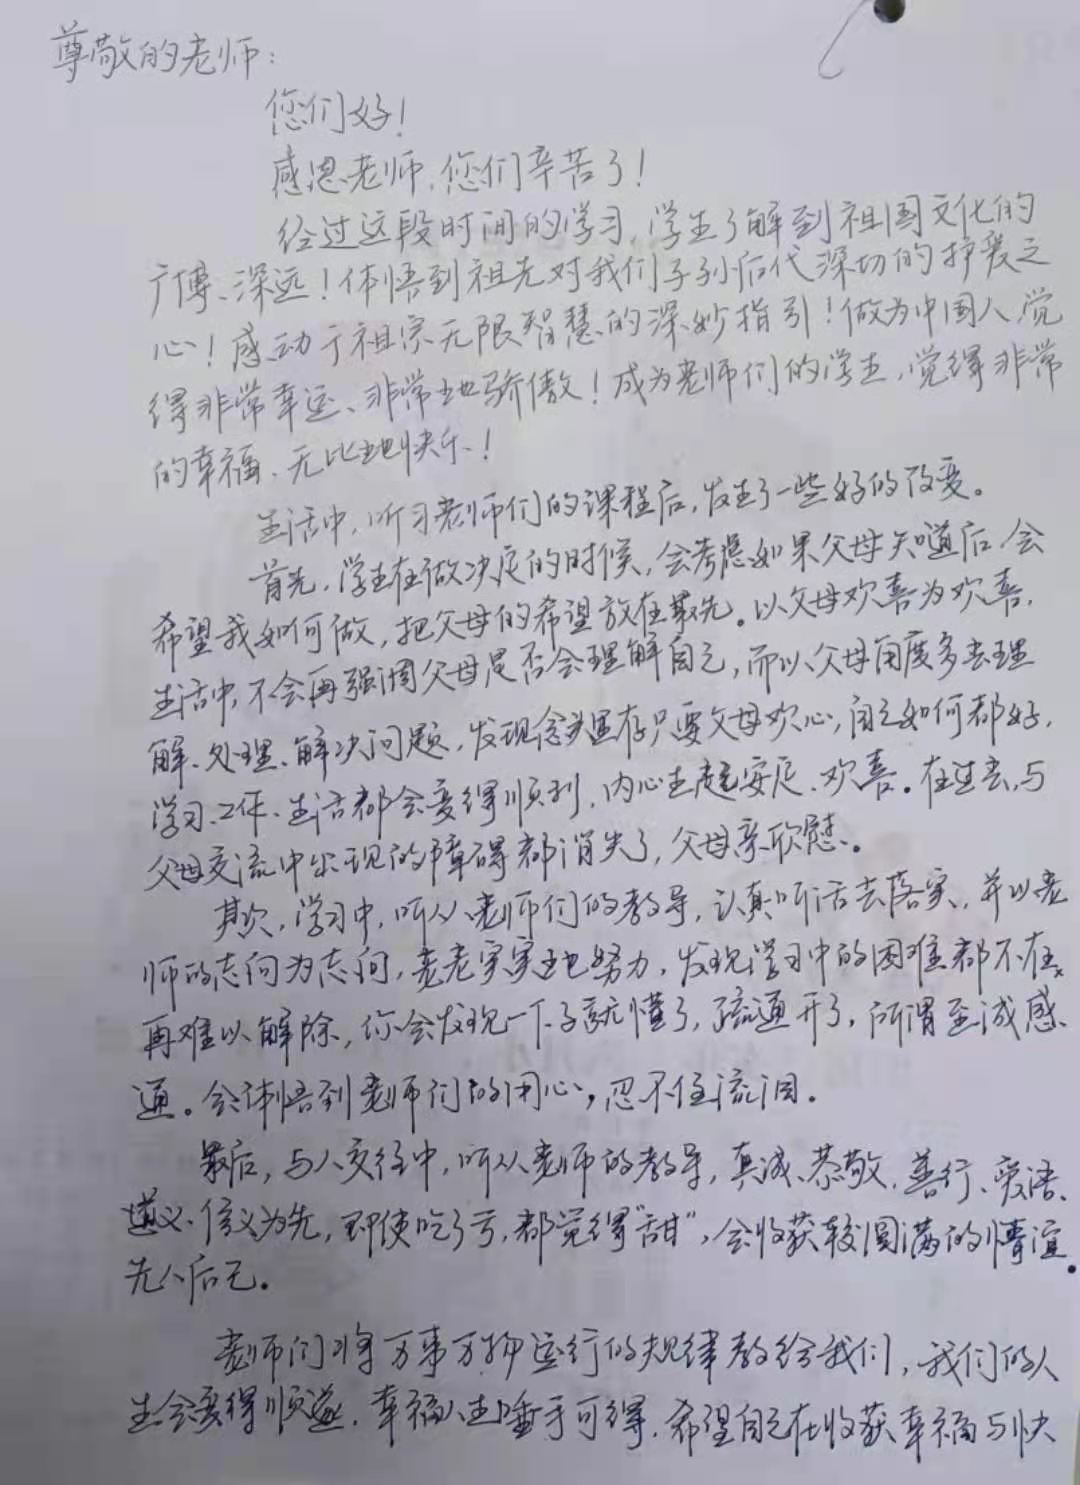 尊敬的老师：
您们好！
感恩老师，您们辛苦了！
经过这段时间的学习，学生了解到祖国文化的
广博、深远！体悟到祖先对我们子孙后代深切的护爱之
心！感动于祖宗无限智慧的深妙指引！做为中国人觉
得非常幸运、非常地骄傲！成为老师们的学生，觉得非常
的幸福、无比地快乐！
生活中，听习老师们的课程后，发生了一些好的改变。
首先，学生在做决定的时候，会考虑如果父母知道后，会
希望我如何做，把父母的希望放在最先。以父母欢喜为欢喜，
生活中，不会再强调父母是否会理解自己，而以父母角度多去理
解、处理、解决问题，发现念头里存只要父母欢心，自己如何都好，
学习、工作、生活都会变得顺利，内心生起安定、欢喜。在过去，与
父母交流中出现的障碍都消失了，父母亲欣慰。
其次，学习中，听从老师们的教导，认真听话去落实，并以老
师的志向为志向，老老实实地努力，发现学习中的困难都不在，
再难以解除，你会发现一下子就懂了，疏通开了，所谓至诚感
通。会体悟到老师们的用心，忍不住流泪。
最后，与人交往中，听从老师的教导，真诚、恭敬、善行、爱语、
道义、信义为先，即使吃了亏，都觉得“甜”，会收获较圆满的情谊。
先人后己。
老师们将万事万物运行的规律教给我们，我们的人
生会变得顺遂，幸福人生唾手可得，希望自己在收获幸福与快